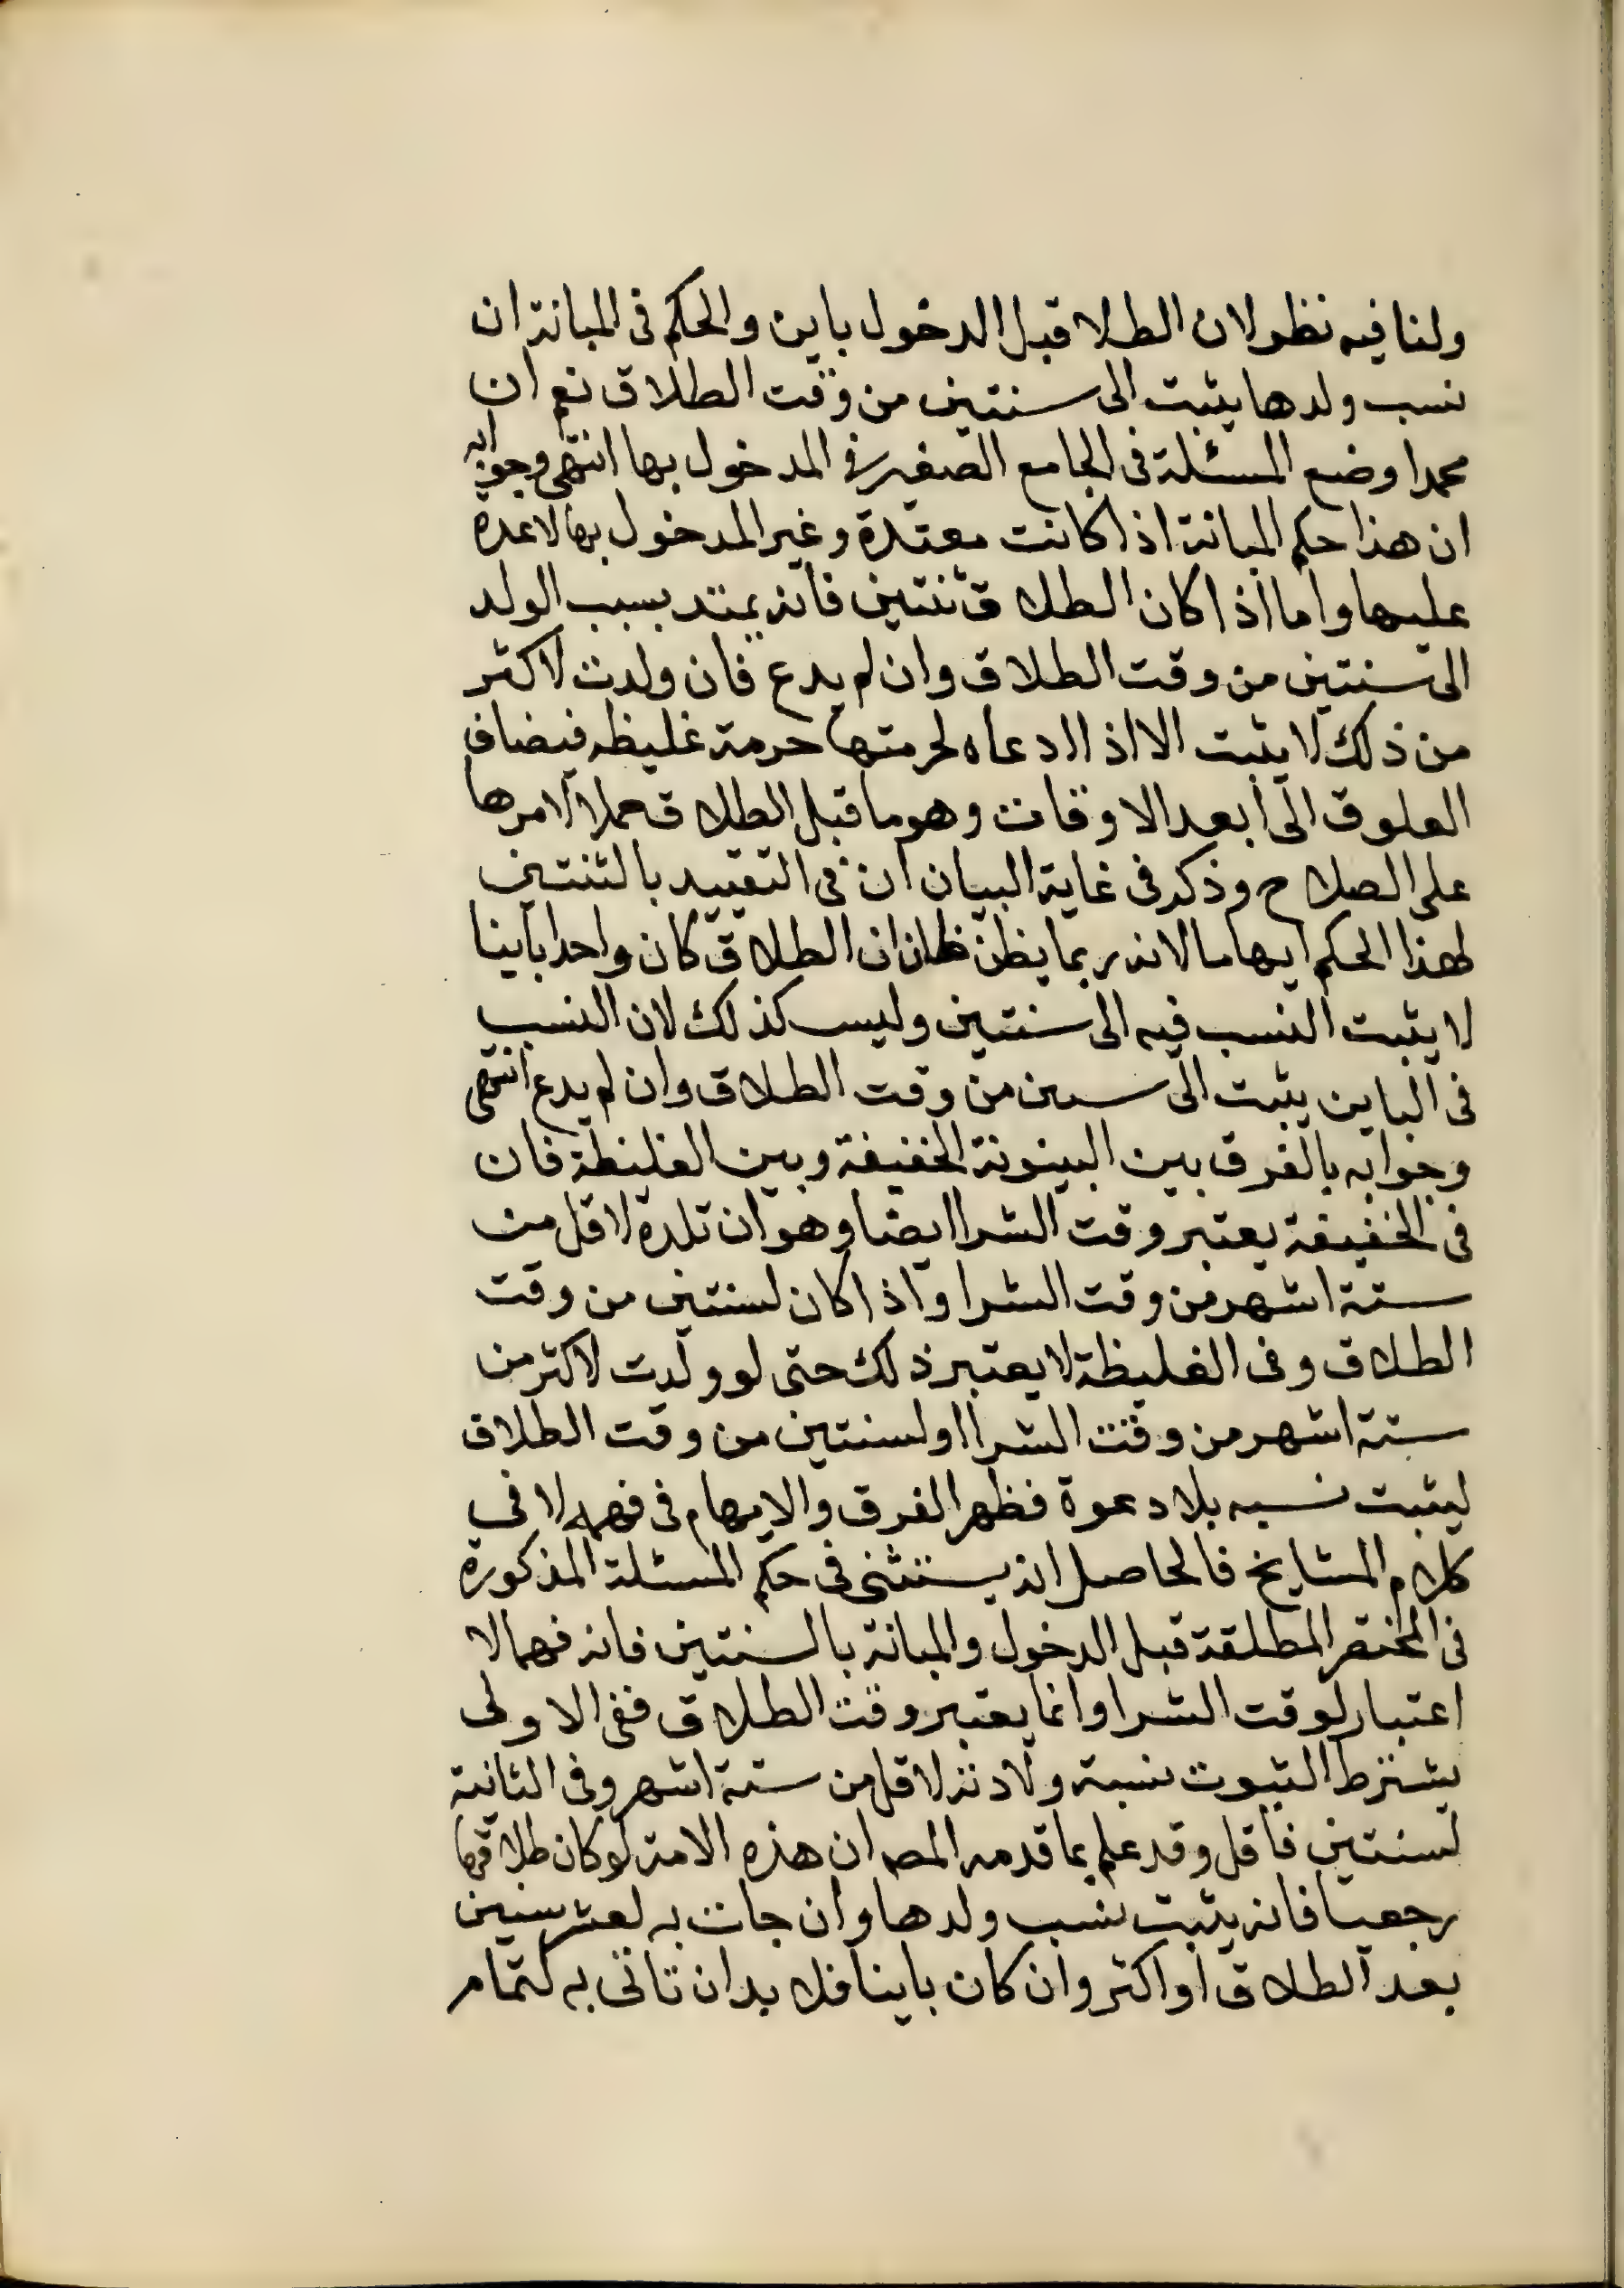 ولنا فيه نظر لان الطلا قبل الدخول باين والحكم فى المبانة ان
نسب ولدها يثبت الى سنتين من وقت الطلاق نعم ان
محمدا وضع المسئلة فى الجامع الصغير فى المدخول بها انتهى وجوابه
ان هذا حكم المبانة اذا كانت معتدة وغير المدخول بها لا عدة
عليها واما اذا كان الطلاق ثنتين فانه يمتد بسبب الولد
الى سنتين من وقت الطلاق وان لم يدع فان ولدت لاكثر
من ذلك لا يثبت الا اذا ادعاه لحرمتها حرمة غليظه فيضاف
العلوق الى ابعد الاوقات وهو ما قبل الطلاق حملا لامرها
على الصلاح وذكر فى غاية البيان ان فى التقييد بالثنتين
لهذا الحكم ايهاما لانه ربما يظن ظان ان الطلاق كان واحدا باينا
لا يثبت النسب فيه الى سنتين وليس كذلك لان النسب
فى الباين يثبت الى سىىن من وقت الطلاق وان لم يدع انتهى
وجوابه بالفرق بين البينونة الخفيفة وبين الغليظة فان
فى الخفيفة يعتبر وقت الشرا ايضا وهو ان تلده لاقل من
ستة اشهر من وقت الشرا واذا كان لسنتين من وقت
الطلاق وفى الغليظة لا يعتبر ذلك حتى لو ولدت لاكثر من
ستة اشهر من وقت الشرا او لسنتين من وقت الطلاق
ليثبت نسبه بلا دعوة فظهر الفرق والايهام فى فهمه لا فى
كلام المشايخ فالحاصل انه يستثنى فى حكم المسئلة المذكورة
فى المختصر المطلقة قبل الدخول والمبانة بالسنتين فانه فيهما لا
اعتبار لوقت الشرا وانما يعتبر وقت الطلاق ففى الاولى
يشترط لثبوت نسبة ولادته لاقل من ستة اشهر وفى الثانية
لسنتين فاقل وقد علم بما قدمه المصه ان هذه الامة لو كان طلاقها
رجعيا فانه يثبت نسب ولدها وان جات به لعشر سنين
بعد الطلاق او اكثر وان كان باينا فلا بد ان تاتى به لتمام